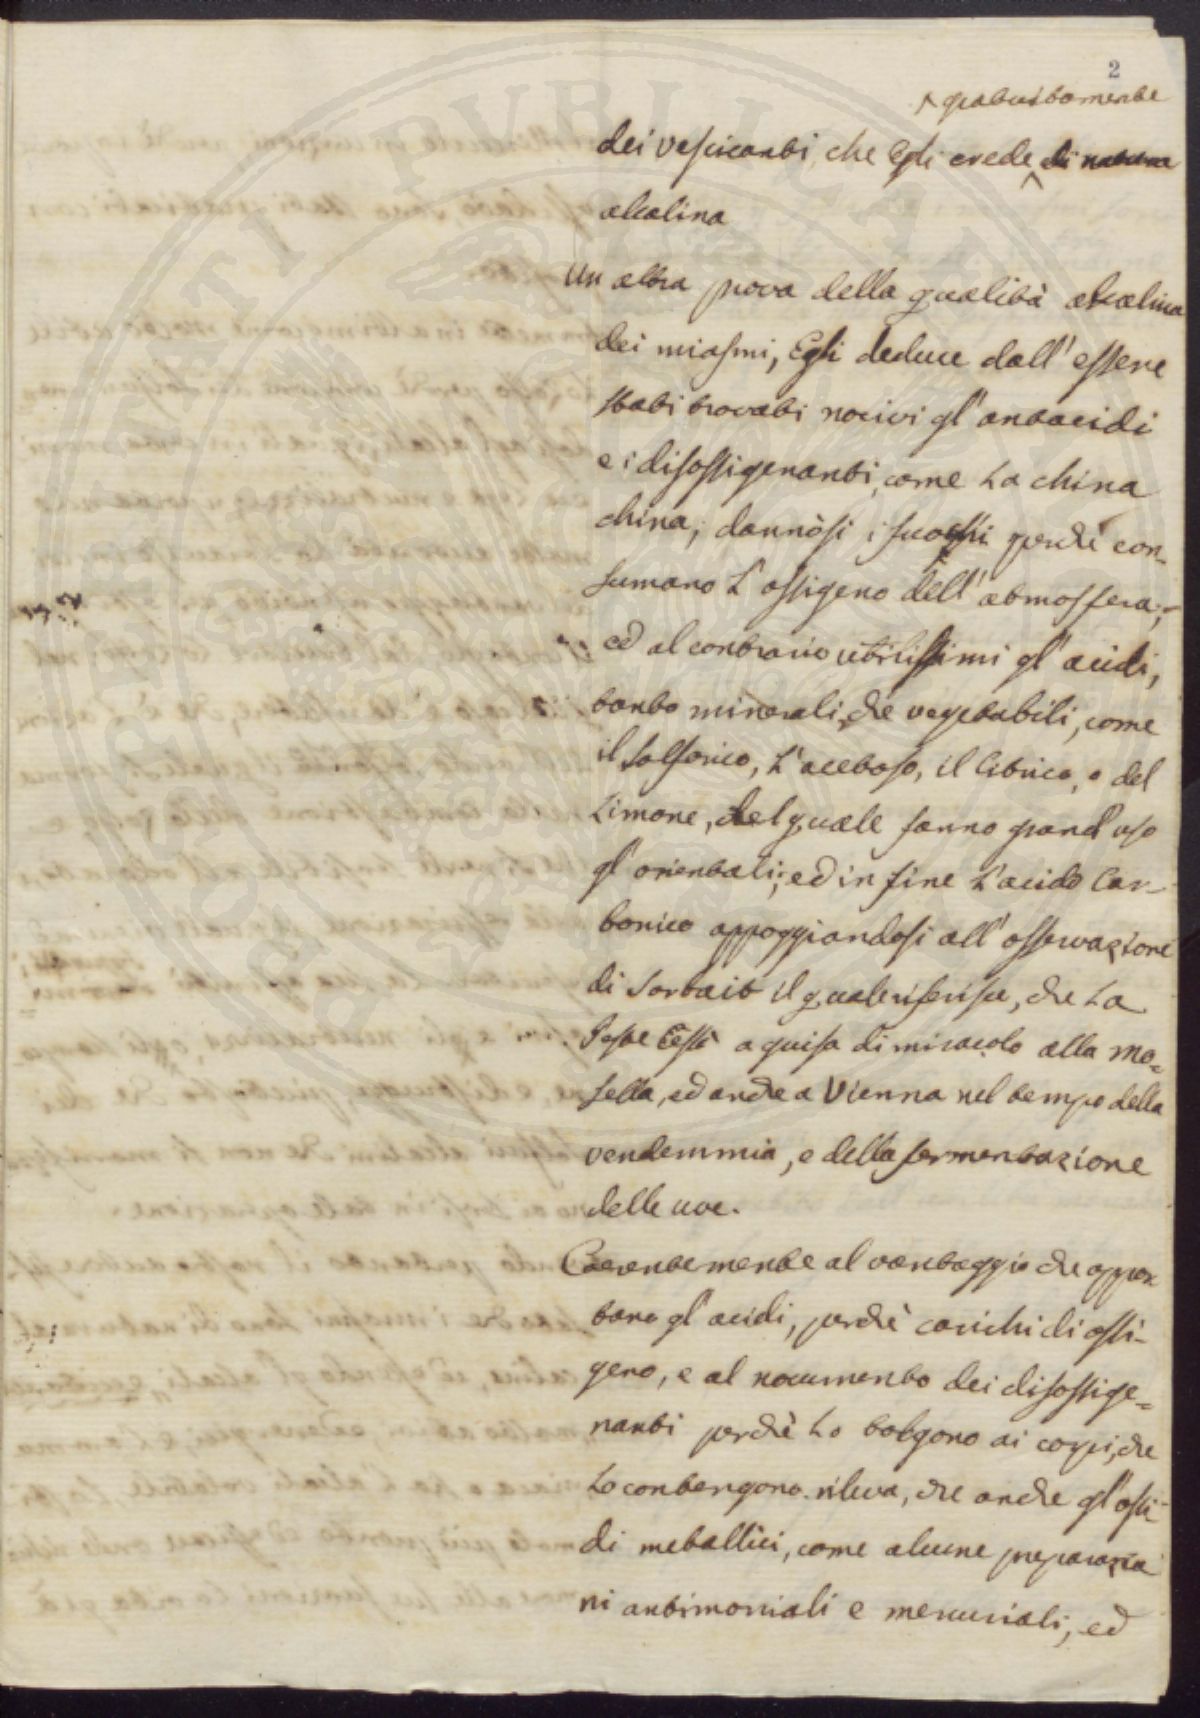 2
^ gratuitamente
dei vescicanti, che Egli crede ^ di natura
alcalina
Un altra prova della qualità alcalina
dei miasmi, Egli deduce dall' essere
stati trovati nocivi gl' antacidi
e i disossigenanti, come la china
china; dannosi i fuochi perchè con-
sumano l' ossigeno dell' atmosfera;
ed al contrario utilissimi gl' acidi,
tanto minerali, che vegetabili, come
il solforico, l' acetoso, il Citrico, o del
Limone, del quale fanno grand' uso
gl' orientali; ed in fine l' acido Car-
bonico appoggiandosi all' osservazione
di Sorbait il quale riferisce, che la
Peste cessò a guisa di miracolo alla Mo=
sella, ed anche a Vienna nel tempo della
vendemmia, e della fermentazione
delle uve.
Coerentemente al vantaggio che appor
tano gl' acidi, perchè carichi di ossi-
geno, e al nocumento dei disossige=
nanti perchè lo tolgono ai corpi, che
lo contengono. rileva, che anche gl' ossi-
di metallici, come alcune preparazio
ni antimoniali e mercuriali, ed